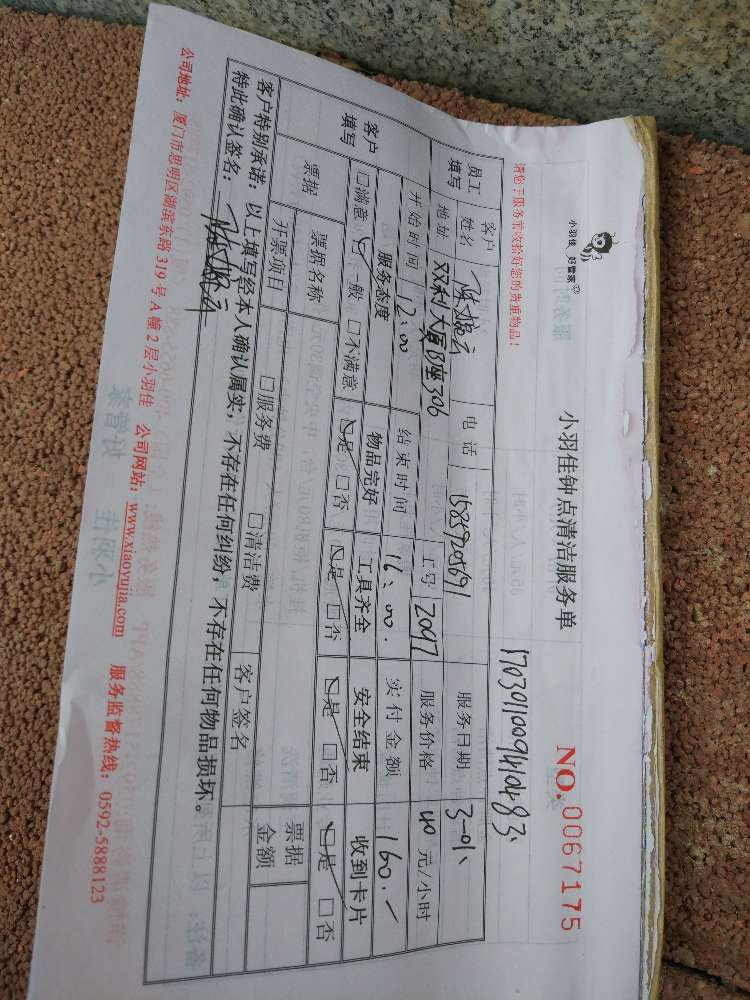 小羽佳 好管家
小羽佳钟点清洁服务单
NO. 0067175
请您于服务前收拾好您的贵重物品!
员工填写
客户姓名
电话 15859205691
服务日期 3-01
地址 双利大厦B座306
工号 2097
服务价格 40 元/小时
开始时间 12:00
结束时间 16:00.
实付金额 160.-
客户填写
服务态度 物品完好 工具齐全 安全结束 收到卡片
□满意 ☑一般 □不满意 ☑是 □否 ☑是 □否 ☑是 □否 ☑是 □否
票据 票据名称 客户签名 票据金额
开票项目 □服务费 □清洁费
客户特别承诺:以上填写经本人确认属实,不存在任何纠纷,不存在任何物品损坏。
特此确认签名:
公司地址:厦门市思明区湖滨东路 319 号 A 幢 2 层小羽佳 公司网站:www.xiaoyujia.com 服务监督热线:0592-5888123